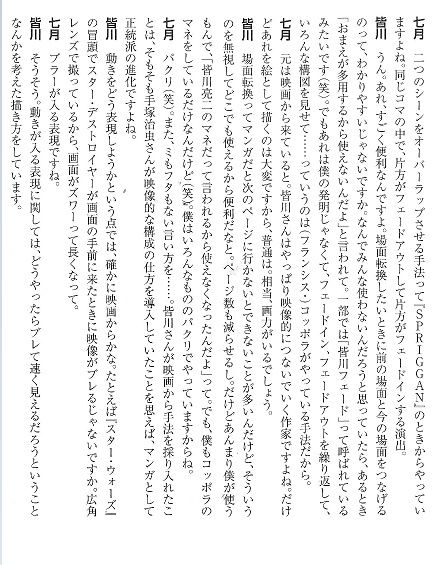 七月　二つのシーンをオーバーラップさせる手法って『SPRIGGAN』のときからやってい
ますよね。同じコマの中で、片方がフェードアウトして片方がフェードインする演出。
皆川　うん。あれ、すごく便利なんですよ。場面転換したいときに前の場面と今の場面をつなげる
のって、わかりやすいじゃないですか。なんでみんな使わないんだろうと思っていたら、あるとき
「おまえが多用するから使えないんだよ」と言われて。一部では「皆川フェード」って呼ばれている
みたいです（笑）。でもあれは僕の発明じゃなくて、フェードイン、フェードアウトを繰り返して、
いろんな構図を見せて……っていうのは（フランシス・）コッポラがやっている手法だから。
七月　元は映画から来ていると。皆川さんはやっぱり映像的につないでいく作家ですよね。だけ
どあれを絵として描くのは大変ですから、普通は。相当、画力がいるでしょう。
皆川　場面転換ってマンガだと次のページに行かないとできないことが多いんだけど、そういう
のを無視してどこでも使えるから便利だなと。ページ数も減らせるし。だけどあんまり僕が使う
もんで、「皆川亮二のマネだって言われるから使えなくなったんだよ」って。でも、僕もコッポラの
マネをしているだけなんだけど（笑）。僕はいろんなもののパクリでやっていますからね。
七月　パクリ（笑）。また、ミもフタもない言い方を……。皆川さんが映画から手法を採り入れたこ
とは、そもそも手塚治虫さんが映像的な構成の仕方を導入していたことを思えば、マンガとして
正統派の進化ですよね。
皆川　動きをどう表現しようかという点では、確かに映画からかな。たとえば『スター・ウォーズ』
の冒頭でスター・デストロイヤーが画面の手前に来たときに映像がブレるじゃないですか。広角
レンズで撮っているから、画面がズワーって長くなって。
七月　ブラーが入る表現ですね。
皆川　そうそう。動きが入る表現に関しては、どうやったらブレて速く見えるだろうということ
なんかを考えた描き方をしています。